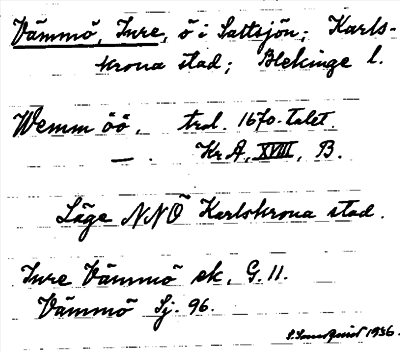 Vämmö, Inre, ö i Saltsjön; Karls-
krona stad; Blekinge l.
Wemm öö, trol. 1670-talet
— . Kr A, XVIII, B.
Läge NNÖ Karlskrona stad.
Inre Vämmö ek. G. 11.
Vämmö Sj. 96.
1936.